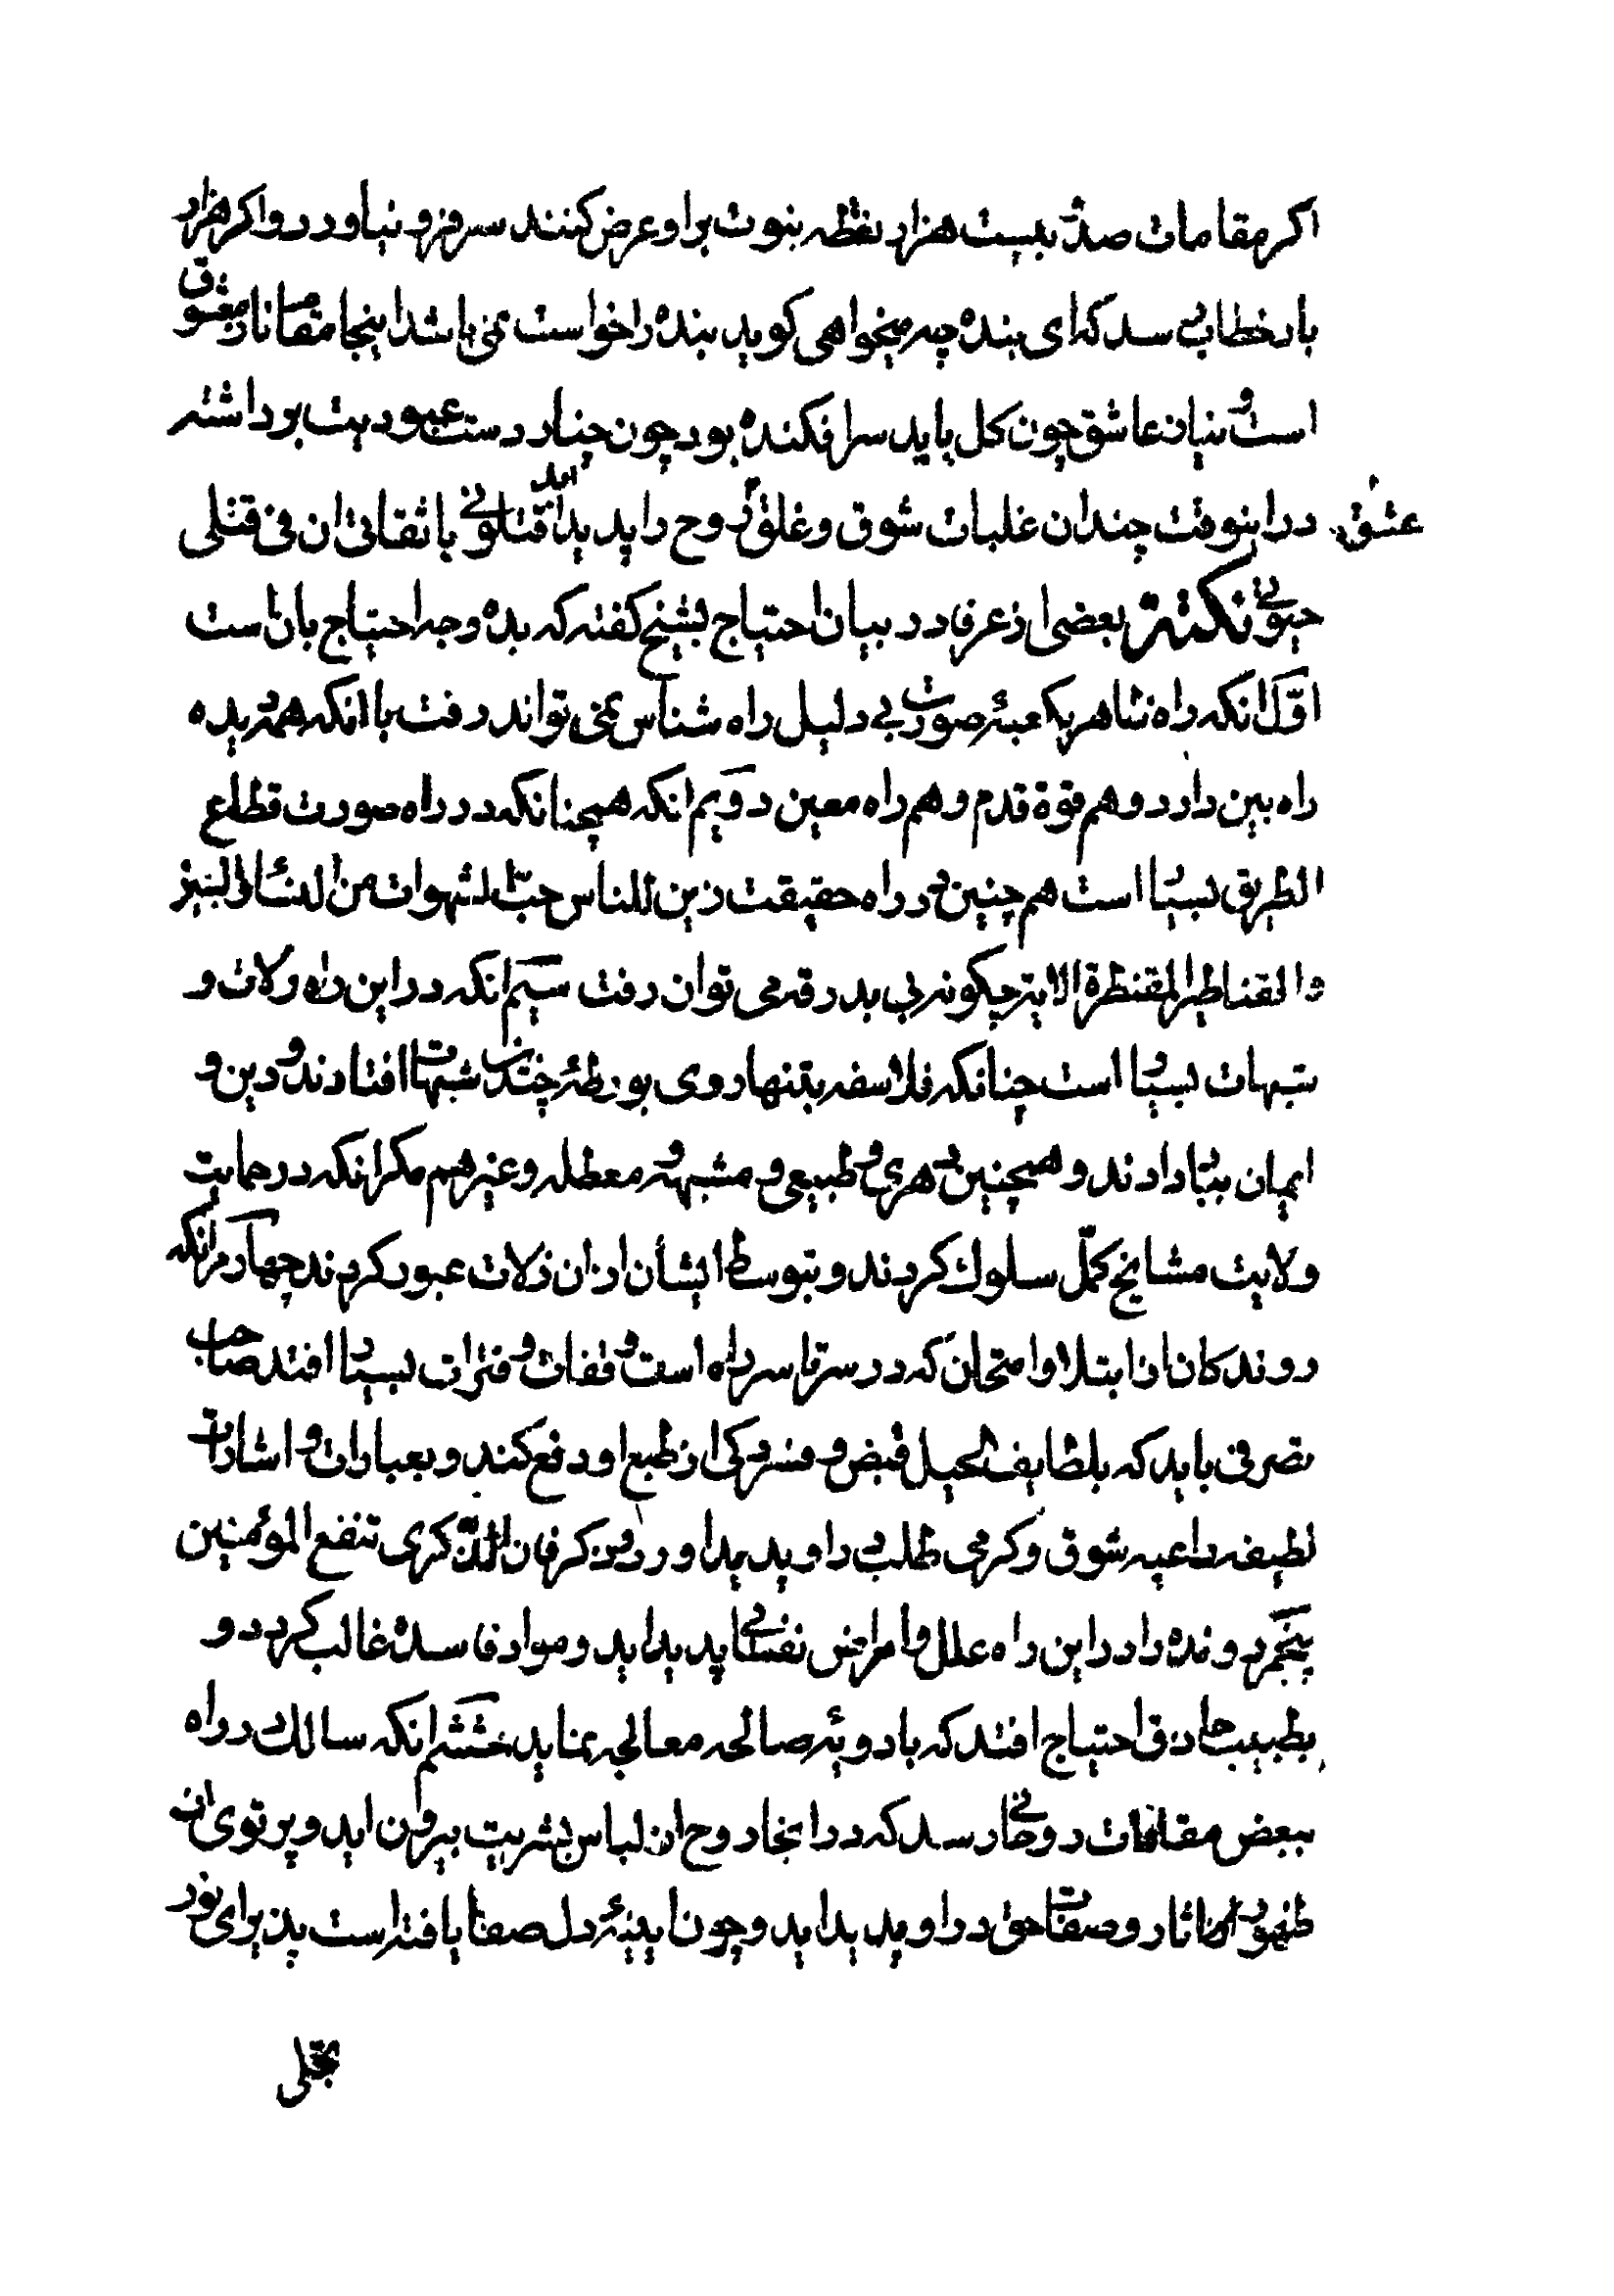 اکر مقامات صد و بیست هزار نقطه نبوت بر او عرض کنند سر فرو نیاورد و اکر هزار
بار خطاب رسد که ای بنده چه میخواهی کوید بنده را خواست نمی باشد اینجا مقام ناز معشوق
است و نیاز عاشق چون کل باید سر افکنده بود چون چنار دست عبودیت برداشته
در اینوقت چندان غلبات شوق و عشق روح را پدید اید اقتلونی یا ثقاتی ان فی قتلی
حیوتی نکته بعضی از عرفا در بیان احتیاج بشیخ کفته که بده وجه احتیاج بان است
اول انکه راه ظاهر بکعبهٔ صورت بی دلیل راه شناس نمی تواند رفت با انکه هم دیده
راه بین دارد و هم قوة قدم و هم راه معین دویم انکه همچنانکه در راه صورت قطاع
الطریق بسیار است هم چنین در راه حقیقت زین للناس حب الشهوات من النساء والبنین
والقناطیر المقنطرة الایه چکونه بی بدرقه می توان رفت سیم انکه در این راه زلات و
شبهات بسیار است چنانکه فلاسفه بتنها روی بورطهٔ چندین شبهات افتادند و دین و
ایمان بباد دادند و همچنین دهری و طبیعی و مشبهه و معطله و غیرهم مکر انکه در حمایت
ولایت مشایخ کمل سلوک کردند و بتوسط ایشان از ان زلات عبور کردند چهارم انکه
روندکان را از ابتلا و امتحان که در سرتاسر راه است وقفات و فترات بسیار افتد صاحب
تصرفی باید که بلطایف الحیل قبض و فسردکی از طبع او دفع کند و بعبارات و اشارات
لطیفه داعیه شوق و کرمی طلب در او پدید اورد و ذکر فان الذکری تنفع المؤمنین
پنجم رونده را در این راه علل و امراض نفسانی پدید اید و مواد فاسده غالب کردد و
بطبیب حاذق احتیاج افتد که بادویهٔ صالحه معالجه نماید ششم انکه سالک در راه
ببعض مقامات روحانی رسد که در انجا روح از لباس بشریت بیرون اید و پرتوی از
ظهور اثار و صفات حق در او پدید اید و چون ایینهٔ دل صفا یافته است پذیرای نور
تجلی